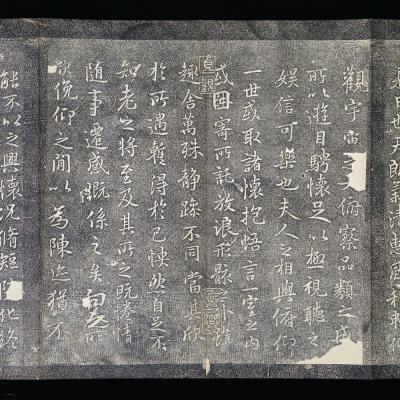 是日也天朗氣清惠風和暢仰
觀宇宙之大俯察品類之盛
所以遊目騁懷足以極視聽之
娛信可樂也夫人之相與俯仰
一世或取諸懷抱悟言一室之內
或因寄所託放浪形骸之外雖
趣舍萬殊靜躁不同當其欣
於所遇暫得於己快然自足不
知老之將至及其所之既惓情
隨事遷感慨係之矣向之所
欣俛仰之間以為陳迹猶不
能不以之興懷況脩短隨化終